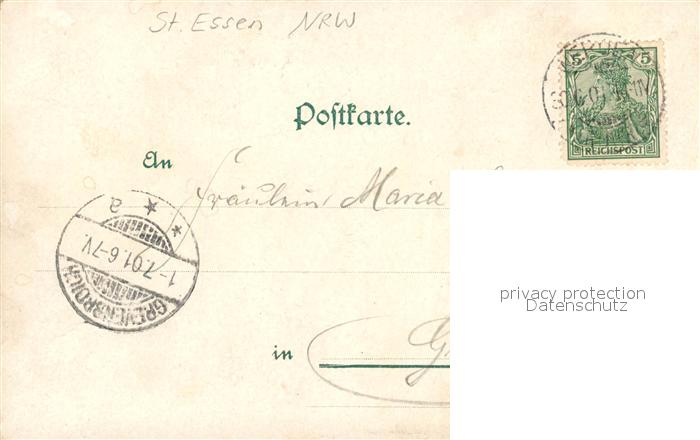 St. Essen NRW
5 5
REICHSPOST
Postkarte.
An
Fräulein Maria
* * a
1-7.01.6-7V.
GREVENBROICH
privacy protection
Datenschutz
in G